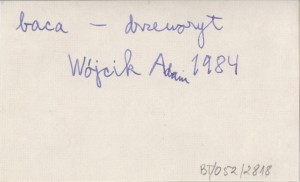 baca – drzeworyt
Wójcik Adam 1984
BT/052/2818